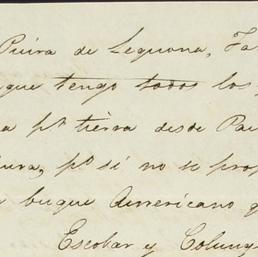 Piura de Lequona, Ta
que tengo todos los
a pr tierra desde Pai
ura, po si no se prop
n buque Americano q
Escobar y Colung